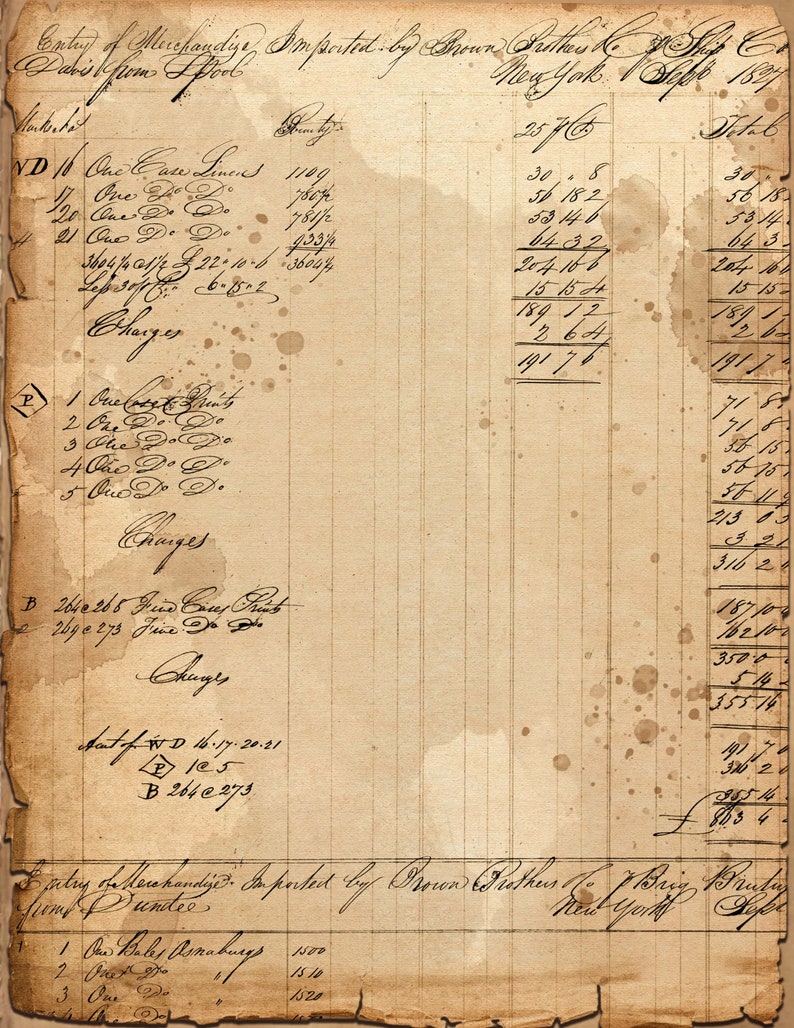 Entry of Merchandize Imported by Brown Brothers & Co p Ship Co
Davis from L'pool New York Sept 1827
25 p Ct Total
WD 16 One Case Linens 1109 30 " 8 30 "
17 One Do Do 780 1/2 56 18 2 56 18
20 One Do Do 781 1/2 53 14 6 53 14
21 One Do Do 933 1/4 64 3 2 64 3
3604 1/4 @ 1/2 £ 22 " 10 " 6 3604 1/4 204 16 6 204 16
Less 15 15 4 15 15
189 1 2 189 1
Charges 2 6 4 2 6
191 7 6 191 7
P 1 One Case Prints 71 8
2 One Do Do 71 8
3 One Do Do 56 15
4 One Do Do 56 15
5 One Do Do 56 11 9
213 0 3
Charges 3 2
316 2
B 264 @ 268 Five Cases Prints 187 10
269 @ 273 Five Do Do 162 10
350 0
Charges 5 14
355 14
Amt of WD 16 17 20 21 191 7
P 1 @ 5 316 2
B 264 @ 273 355 14
£ 863 4
Entry of Merchandize Imported by Brown Brothers & Co p Brig
from Dundee New York Sept
1 One Bales Osnaburgs 1500
2 One Do " 1510
3 One Do " 1520